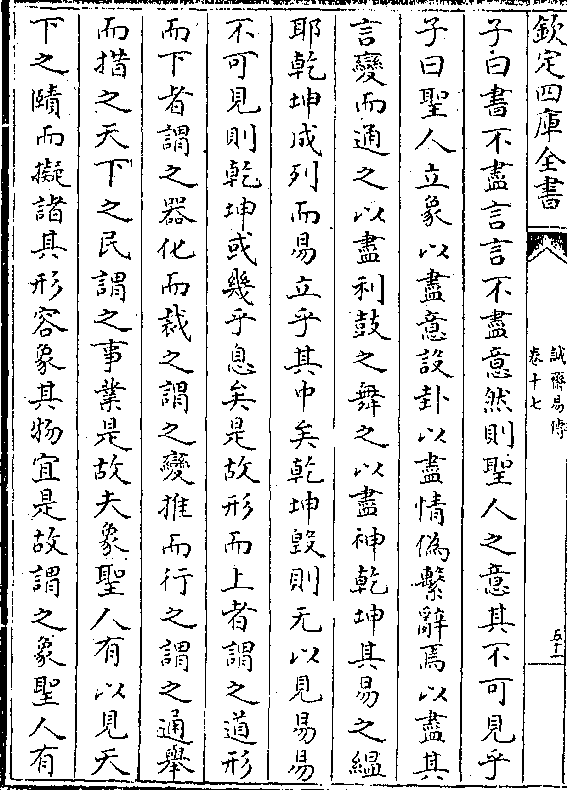 欽定四庫全書
誠齋易傳
卷十七
五十一
子曰書不盡言言不盡意然則聖人之意其不可見乎
子曰聖人立象以盡意設卦以盡情偽繫辭焉以盡其
言變而通之以盡利鼓之舞之以盡神乾坤其易之緼
耶乾坤成列而易立乎其中矣乾坤毀則无以見易易
不可見則乾坤或幾乎息矣是故形而上者謂之道形
而下者謂之器化而裁之謂之變推而行之謂之通舉
而措之天下之民謂之事業是故夫象聖人有以見天
下之賾而擬諸其形容象其物宜是故謂之象聖人有